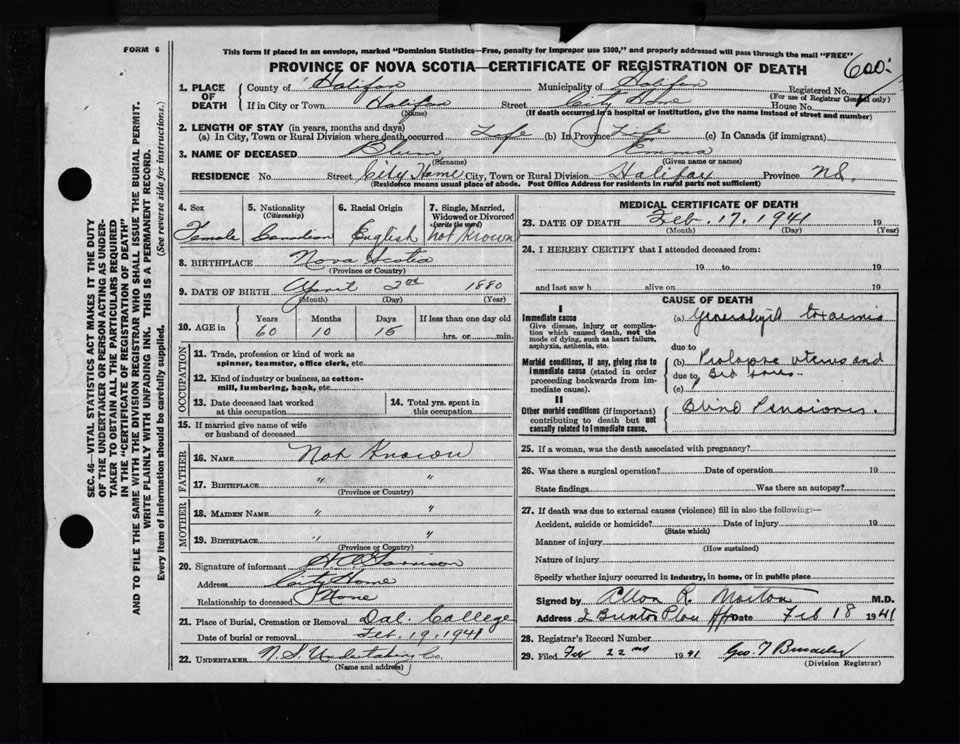 FORM 6
This form if placed in an envelope, marked "Dominion Statistics—Free, penalty for improper use $300," and properly addressed will pass through the mail "FREE"
PROVINCE OF NOVA SCOTIA—CERTIFICATE OF REGISTRATION OF DEATH
600
1. PLACE OF DEATH
County of Halifax Municipality of Halifax Registered No.
(For use of Registrar General only)
If in City or Town Halifax Street City Home House No.
(Name) (If death occurred in a hospital or institution, give the name instead of street and number)
2. LENGTH OF STAY (in years, months and days)
(a) In City, Town or Rural Division where death occurred Life (b) In Province Life (c) In Canada (if immigrant)
3. NAME OF DECEASED Blum Emma
(Surname) (Given name or names)
RESIDENCE No Street City Home City, Town or Rural Division Halifax Province N.S.
(Residence means usual place of abode. Post Office Address for residents in rural parts not sufficient)
4. Sex Female
5. Nationality (Citizenship) Canadian
6. Racial Origin English
7. Single, Married, Widowed or Divorced (write the word) Not Known
8. BIRTHPLACE Nova Scotia
(Province or Country)
9. DATE OF BIRTH April 2nd 1880
(Month) (Day) (Year)
10. AGE in Years Months Days If less than one day old
60 10 15 hrs. or min.
OCCUPATION
11. Trade, profession or kind of work as spinner, teamster, office clerk, etc.
12. Kind of industry or business, as cotton-mill, lumbering, bank, etc.
13. Date deceased last worked at this occupation
14. Total yrs. spent in this occupation
15. If married give name of wife or husband of deceased
FATHER
16. NAME Not Known
17. BIRTHPLACE " "
(Province or Country)
MOTHER
18. MAIDEN NAME " "
19. BIRTHPLACE " "
(Province or Country)
20. Signature of informant
Address City Home
Relationship to deceased None
21. Place of Burial, Cremation or Removal Dal. College
Date of burial or removal Feb. 19, 1941
22. UNDERTAKER N.S Undertaking Co.
(Name and address)
MEDICAL CERTIFICATE OF DEATH
23. DATE OF DEATH Feb. 17, 1941 19
(Month) (Day) (Year)
24. I HEREBY CERTIFY that I attended deceased from:
19 to 19
and last saw h alive on 19
CAUSE OF DEATH
I
Immediate cause
Give disease, injury or complication which caused death, not the mode of dying, such as heart failure, asphyxia, asthenia, etc.
(a) Generalized toxaemia
due to
Morbid conditions, if any, giving rise to immediate cause (stated in order proceeding backwards from immediate cause).
(b) Prolapse uterus and
due to Bed sores
(c)
II
Other morbid conditions (if important) contributing to death but not causally related to immediate cause.
Blind
25. If a woman, was the death associated with pregnancy?
26. Was there a surgical operation? Date of operation 19
State findings Was there an autopsy?
27. If death was due to external causes (violence) fill in also the following:—
Accident, suicide or homicide? Date of injury 19
(State which)
Manner of injury
(How sustained)
Nature of injury
Specify whether injury occurred in industry, in home, or in public place
Signed by Allan R. Morton M.D.
Address Date Feb 18 1941
28. Registrar's Record Number
29. Filed Feb 22nd 1941 Geo. T
(Division Registrar)
SEC. 46—VITAL STATISTICS ACT MAKES IT THE DUTY
OF THE UNDERTAKER OR PERSON ACTING AS UNDER-
TAKER TO OBTAIN ALL THE PARTICULARS REQUIRED
IN THE "CERTIFICATE OF REGISTRATION OF DEATH"
AND TO FILE THE SAME WITH THE DIVISION REGISTRAR WHO SHALL ISSUE THE BURIAL PERMIT.
WRITE PLAINLY WITH UNFADING INK. THIS IS A PERMANENT RECORD.
Every item of information should be carefully supplied. (See reverse side for instructions.)